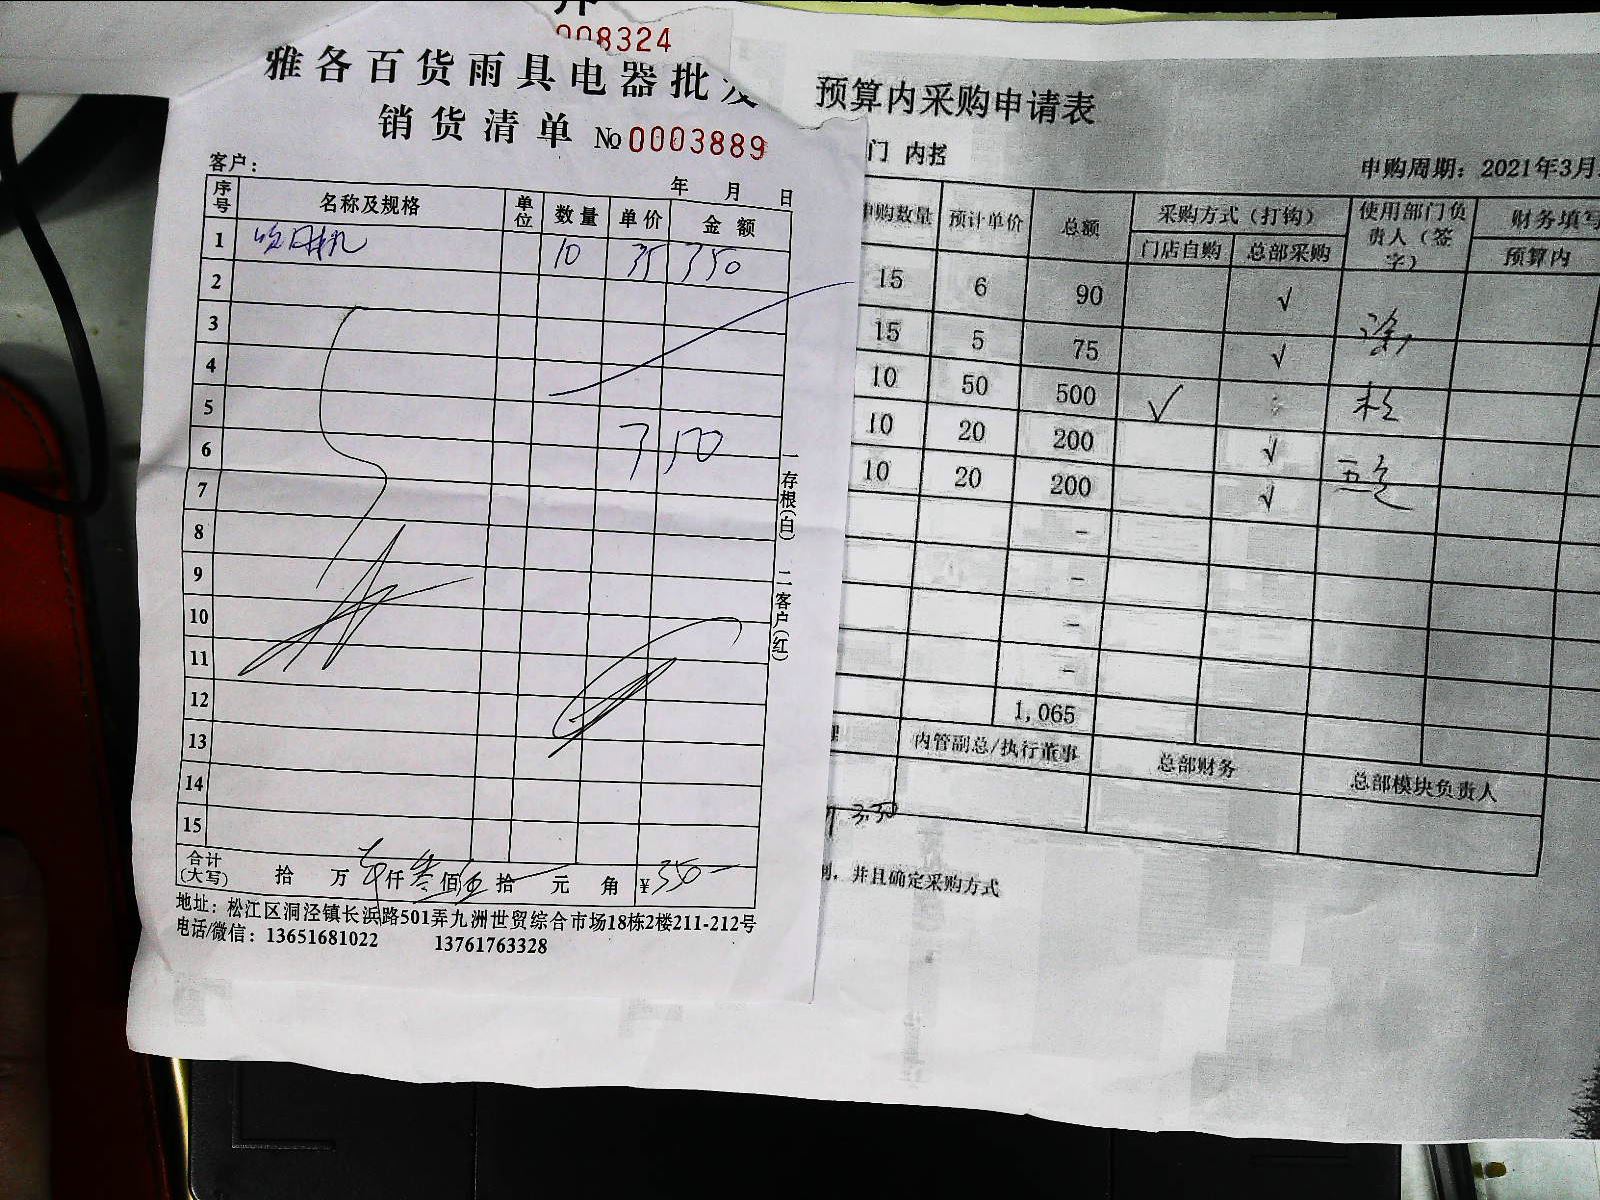 008324
雅各百货雨具电器批发
销货清单 No 0003889
客户：
年 月 日
序号 名称及规格 单位 数量 单价 金额
1 10 35 350
2
3
4
5
6 350
7
8
9
10
11
12
13
14
15
合计(大写) 拾 万 仟 叁 佰 伍 拾 元 角 ¥350
一存根(白) 二客户(红)
地址：松江区洞泾镇长浜路501弄九洲世贸综合市场18栋2楼211-212号
电话/微信：13651681022 13761763328
预算内采购申请表
门 内括
申购周期：2021年3月
申购数量 预计单价 总额 采购方式（打钩） 使用部门负责人（签字） 财务填写
门店自购 总部采购 预算内
15 6 90 √
15 5 75 √
10 50 500 √
10 20 200 √
10 20 200 √
-
-
-
-
1,065
理 内管副总/执行董事 总部财务 总部模块负责人
350
，并且确定采购方式